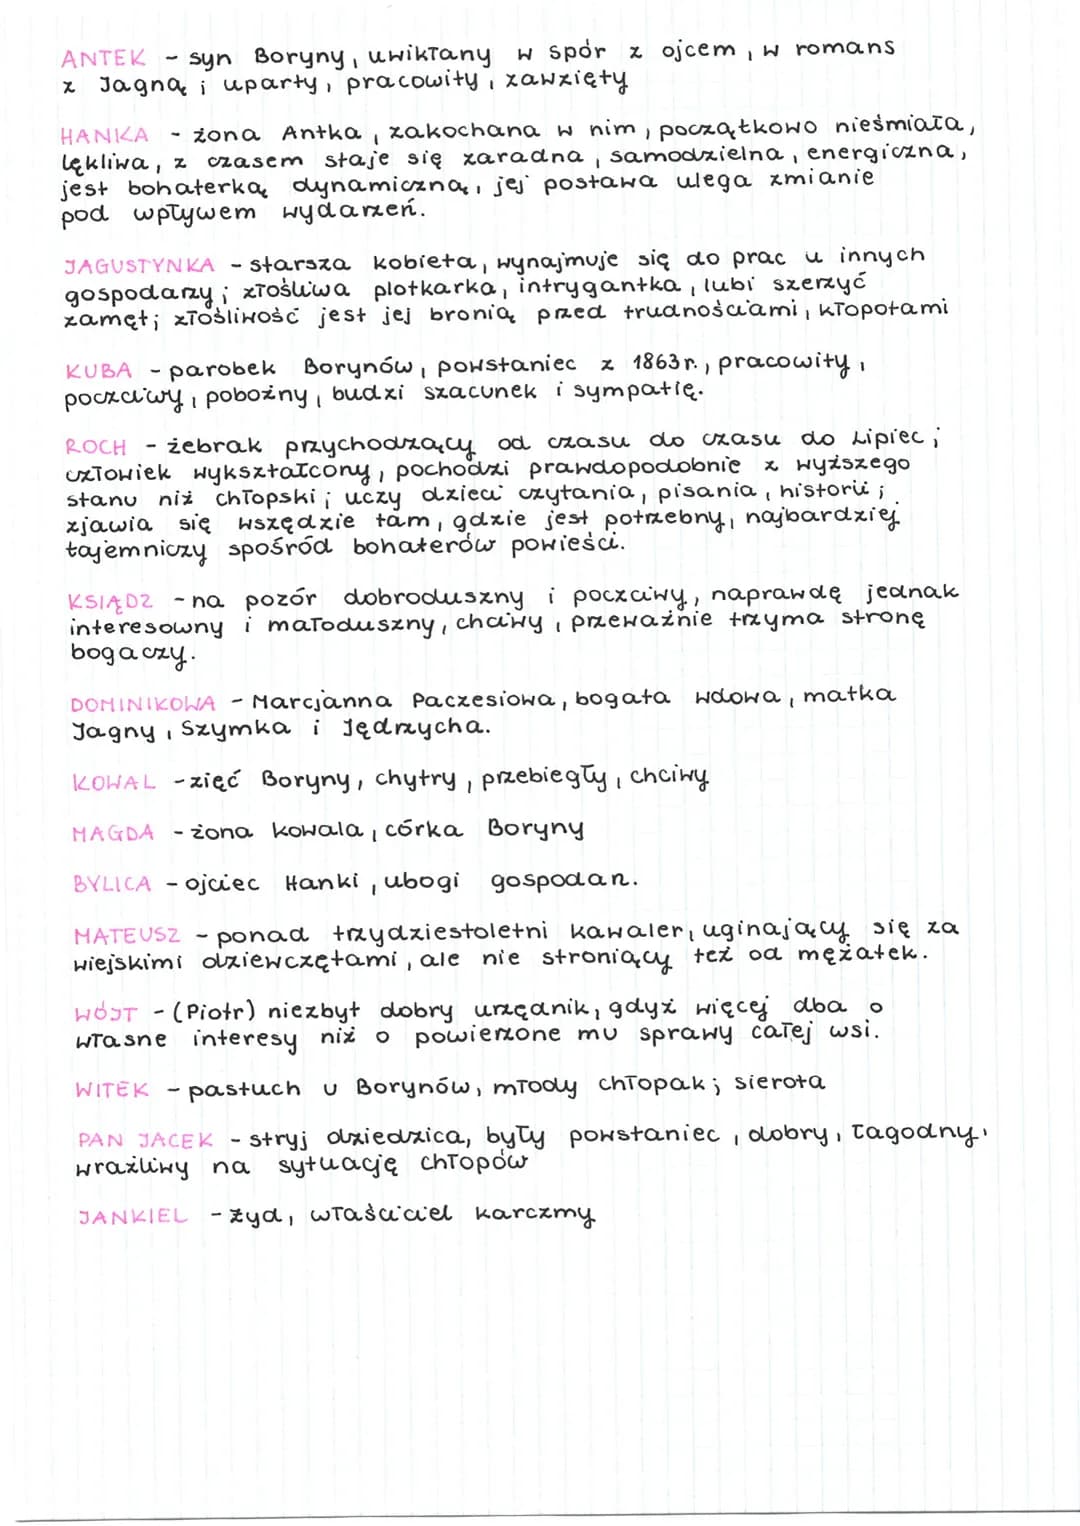 ANTEK - syn Boryny, uwikłany w spór z ojcem, w romans
z Jagną; uparty, pracowity, zawzięty
HANKA - żona Antka, zakochana w nim, początkowo nieśmiała,
lękliwa, z czasem staje się zaradna, samodzielna, energiczna,
jest bohaterką dynamiczną, jej postawa ulega zmianie
pod wpływem wydarzeń.
JAGUSTYNKA - starsza kobieta, wynajmuje się do prac u innych
gospodarzy; złośliwa plotkarka, intrygantka, lubi szerzyć
zamęt; złośliwość jest jej bronią przed trudnościami, kłopotami
KUBA - parobek Borynów, powstaniec z 1863r., pracowity,
poczciwy, pobożny, budzi szacunek i sympatię.
ROCH - żebrak przychodzący od czasu do czasu do Lipiec;
człowiek wykształcony, pochodzi prawdopodobnie z wyższego
stanu niż chłopski; uczy dzieci czytania, pisania, historii;
zjawia się wszędzie tam, gdzie jest potrzebny, najbardziej
tajemniczy spośród bohaterów powieści.
KSIĄDZ - na pozór dobroduszny i poczciwy, naprawdę jednak
interesowny i małoduszny, chciwy, przeważnie trzyma stronę
bogaczy.
DOMINIKOWA - Marcjanna Paczesiowa, bogata wdowa, matka
Jagny, Szymka i Jędrzycha.
KOWAL - zięć Boryny, chytry, przebiegły, chciwy
MAGDA - żona kowala, córka Boryny
BYLICA - ojciec Hanki, ubogi gospodarz.
MATEUSZ - ponad trzydziestoletni kawaler, uginający się za
wiejskimi dziewczętami, ale nie stroniący też od mężatek.
WÓJT - (Piotr) niezbyt dobry urzędnik, gdyż więcej dba o
własne interesy niż o powierzone mu sprawy całej wsi.
WITEK - pastuch u Borynów, młody chłopak; sierota
PAN JACEK - stryj dziedzica, były powstaniec, dobry, łagodny,
wrażliwy na sytuację chłopów
JANKIEL - żyd, właściciel karczmy